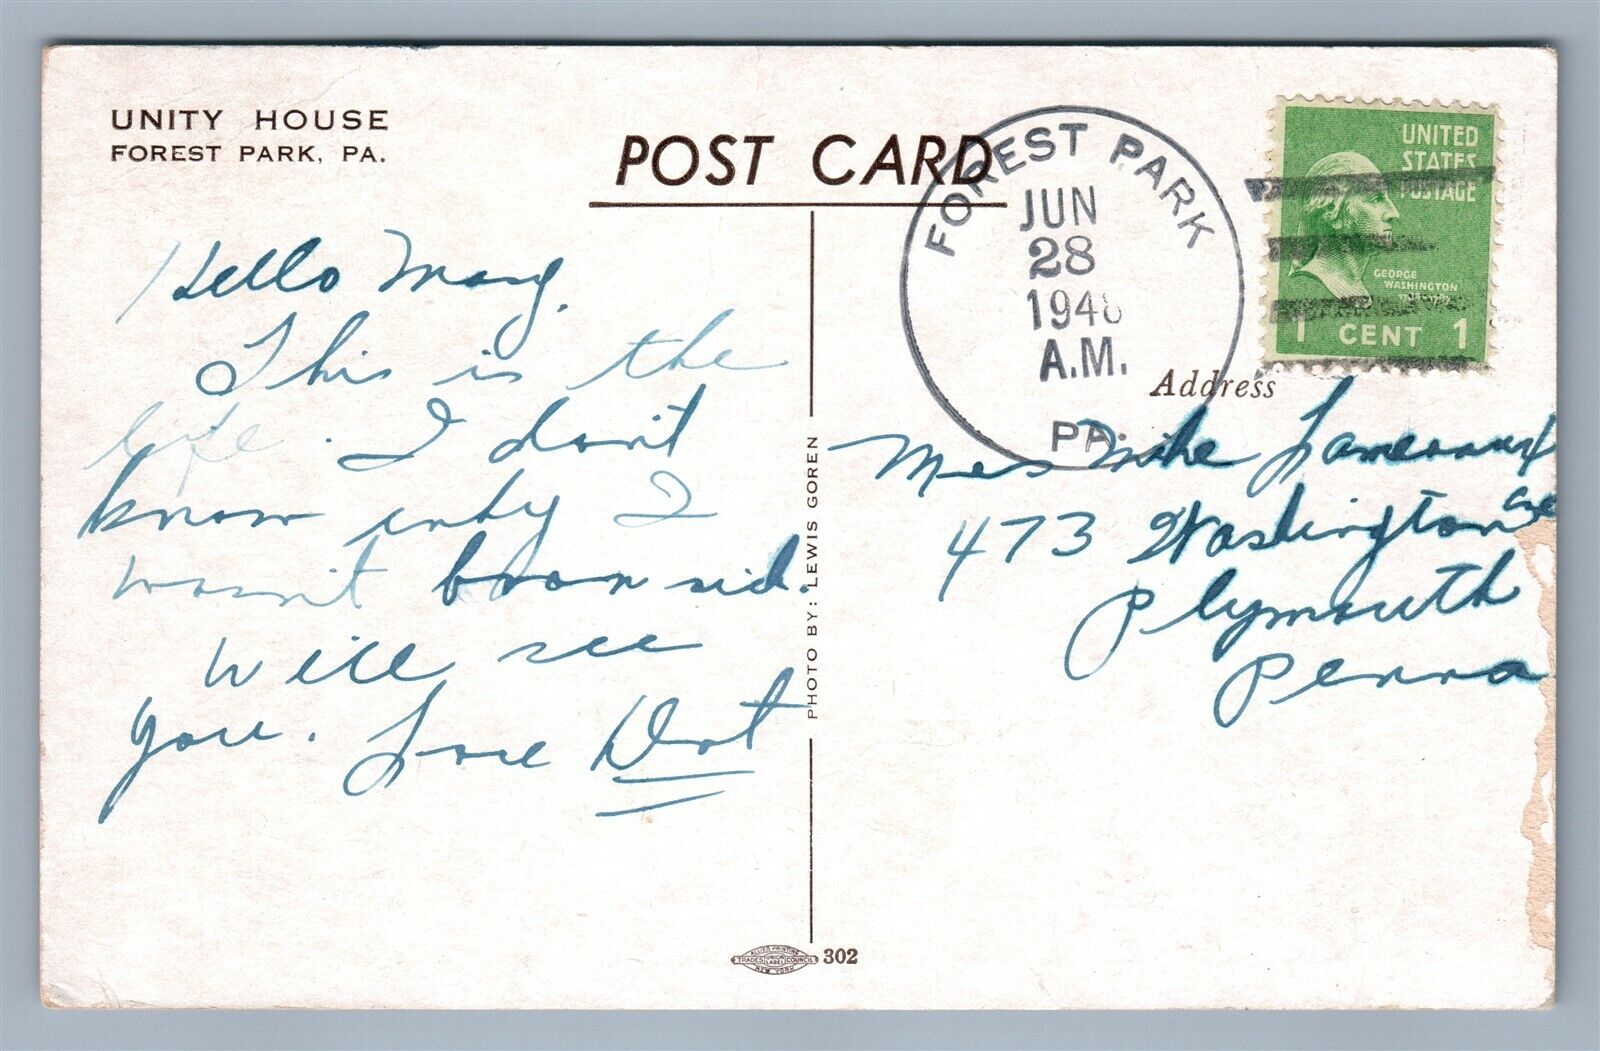 UNITY HOUSE
FOREST PARK, PA.
POST CARD
FOREST PARK
JUN
28
1948
A.M.
PA.
UNITED
STATES
POSTAGE
GEORGE
WASHINGTON
1 CENT 1
Hello Marg.
This is the
life. I don't
know why I
wasn't born rich.
Will see
you. Love Dot
PHOTO BY: LEWIS GOREN
Address
Mrs Mike Lameroux
473 Washington Ave
Plymouth
Penna
ALLIED PRINTING
TRADES UNION LABEL COUNCIL
NEW YORK
302